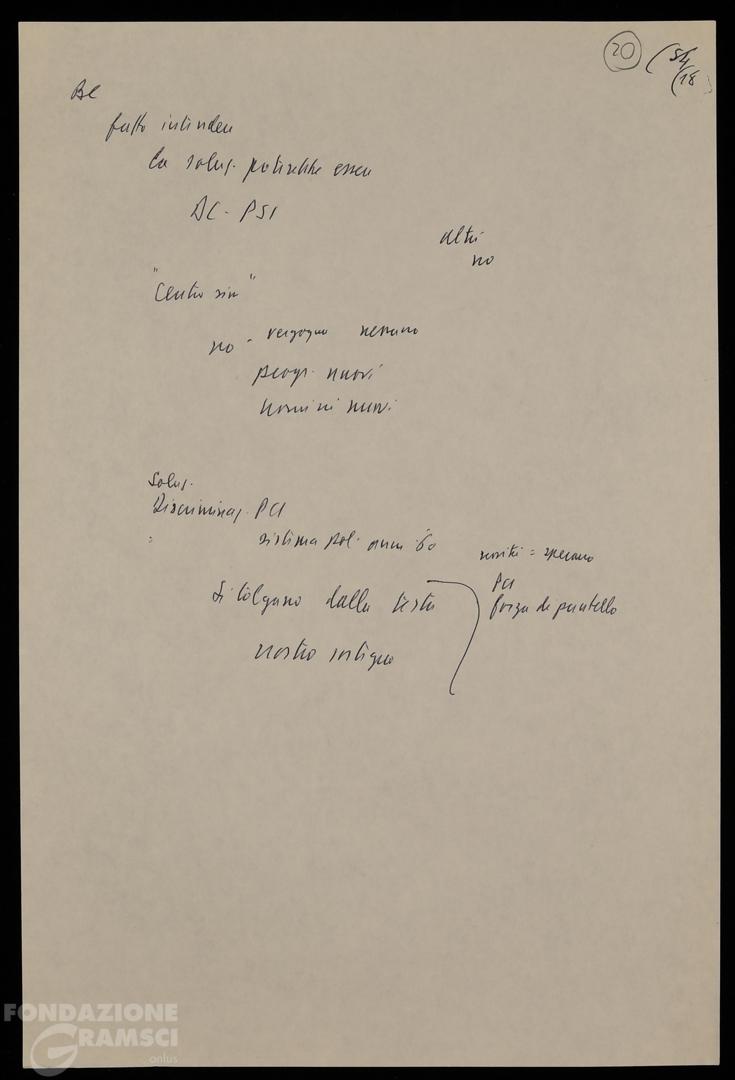 20
54/18
fatto intendere
La soluz. potrebbe essere
DC - PSI
altri
no
"Centro sin"
no - vergogna nessuno
progr. nuovi
uomini nuovi
Soluz.
Discriminaz. PCI
sistema pol. anni '60
novità = sperano
PCI
forza di puntello
Si tolgano dalla testa
nostro sostegno
FONDAZIONE
GRAMSCI
onlus